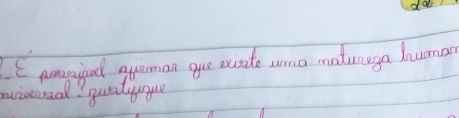 É possível afirmar que existe uma natureza human
universal? justifique